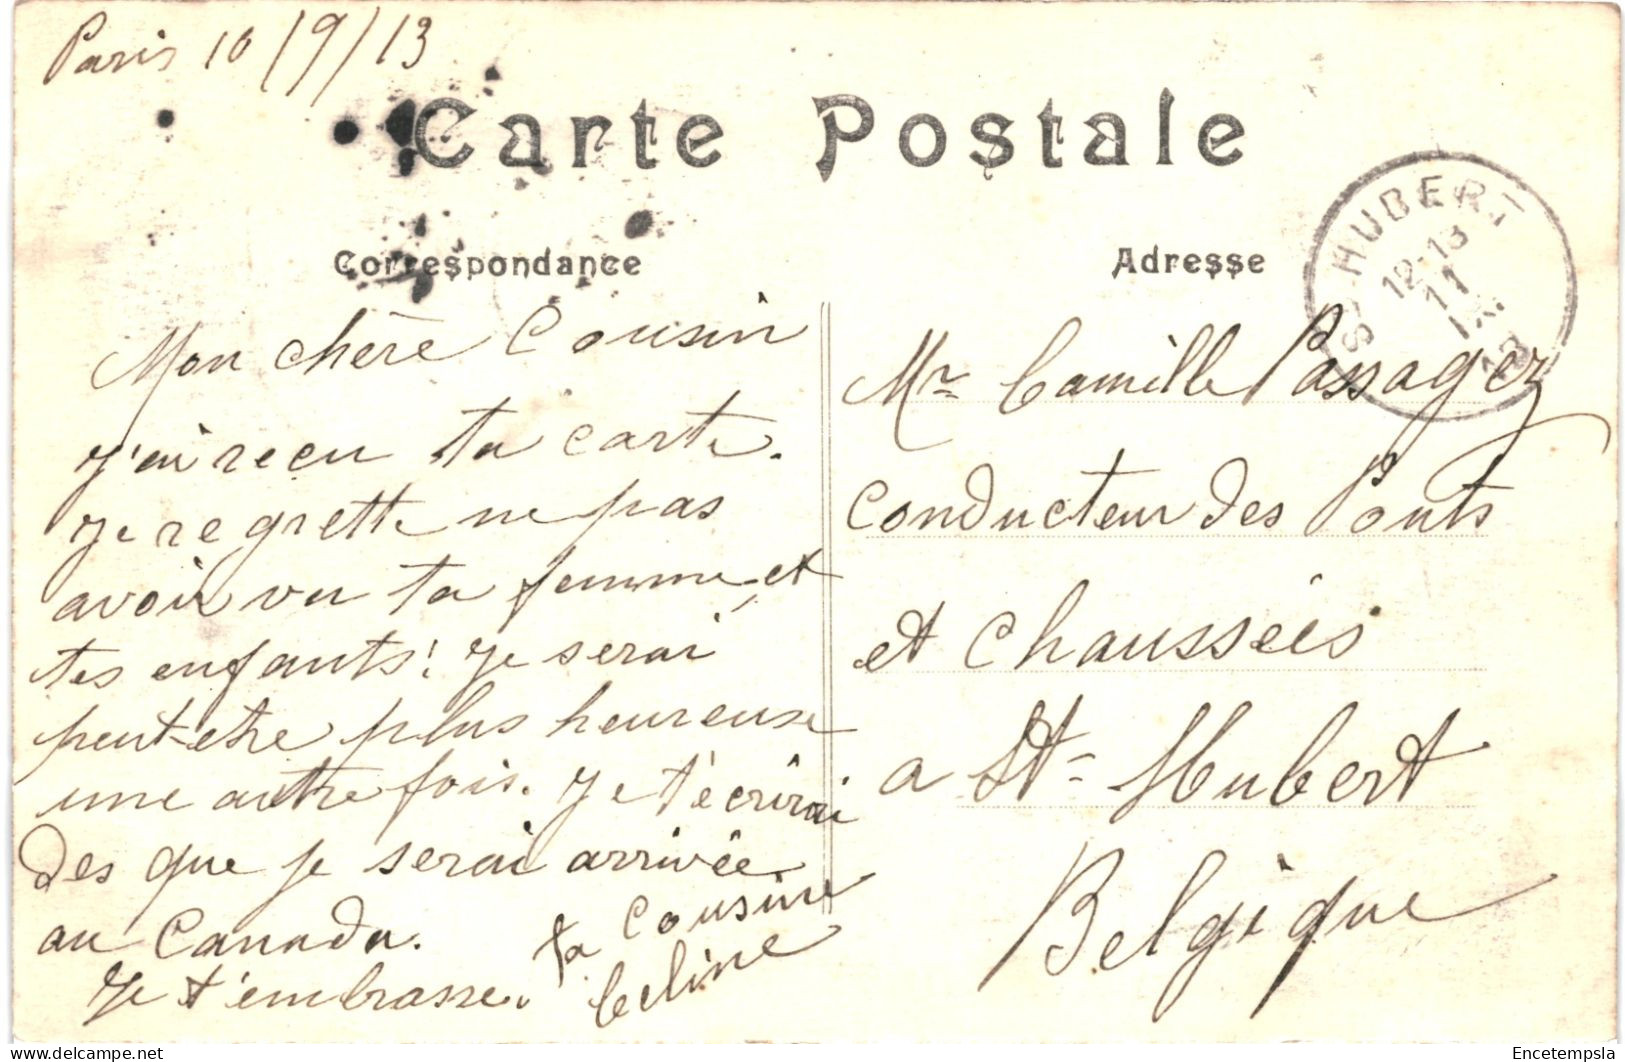 Paris 10/9/13
Carte Postale
Correspondance
Adresse
ST-HUBERT
12-13
11
IX.
13
Mon chère Cousin
j'ai recu ta carte.
je regrette ne pas
avoir vu ta femme, et
tes enfants! je serai
peut-etre plus heureuse
une autre fois. Je t'écrirai
des que je serai arrivée
au Canada.
Je t'embrasse.
ta Cousine
Celine
Mr Camille Passagez
Conducteur des Ponts
et Chaussées
a St-Hubert
Belgique
delcampe.net
Encetempsla